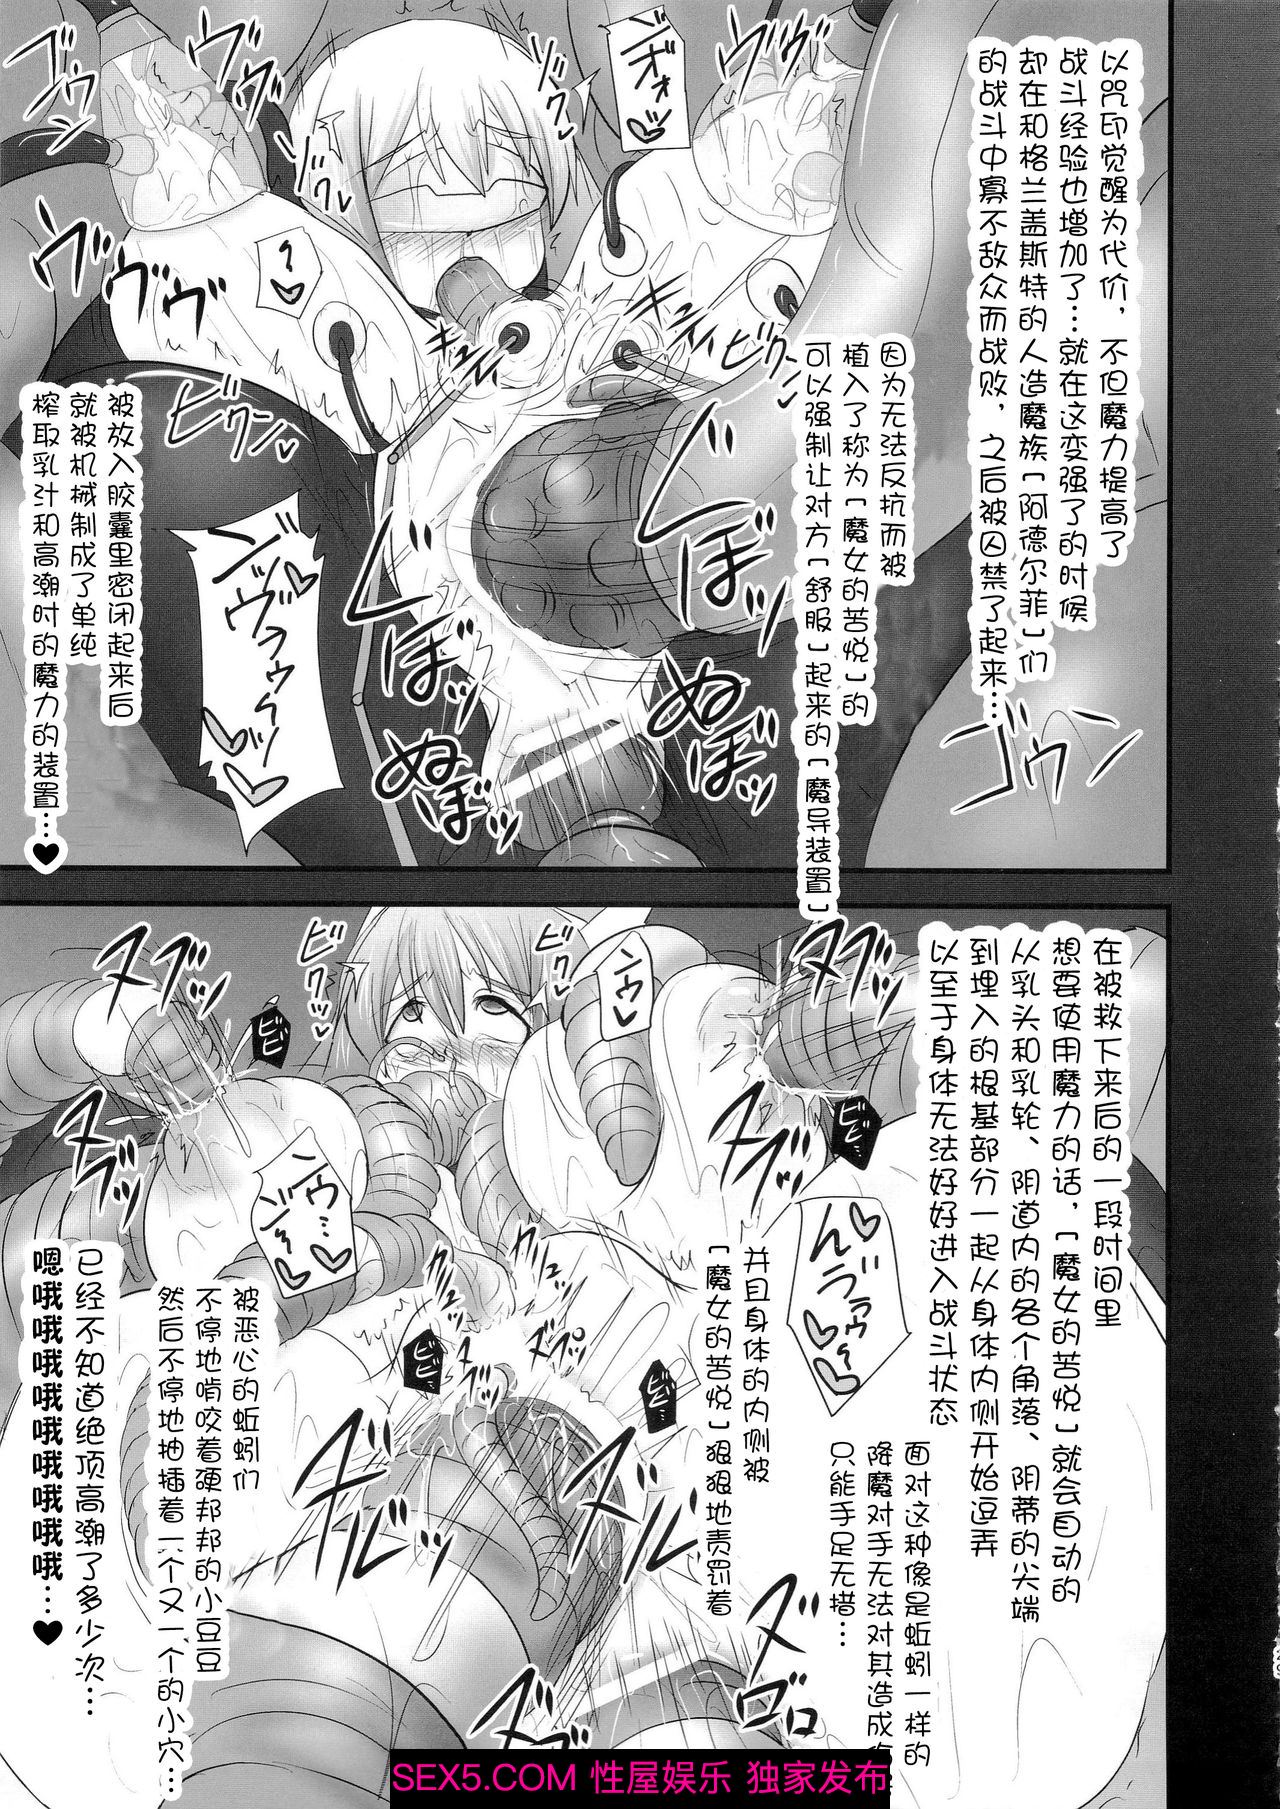 以咒印觉醒为代价，不但魔力提高了
战斗经验也增加了…就在这变强了的时候
却在和格兰盖斯特的人造魔族「阿德尔菲」们
的战斗中寡不敌众而战败，之后被囚禁了起来…
因为无法反抗而被
植入了称为「魔女的苦悦」的
可以强制让对方「舒服」起来的「魔导装置」
被放入胶囊里密闭起来后
就被机械制成了单纯
榨取乳汁和高潮时的魔力的装置…♥
ゴゥン
ヴッ
ヴヴッ
ヴヴッ
ビクッ
ジォォ
ヴヴヴッ
ビクン
ビクン
ゴゥン
ぬぼっ
ぬぼっ
在被救下来后的一段时间里
想要使用魔力的话，「魔女的苦悦」就会自动的
从乳头和乳轮、阴道内的各个角落、阴蒂的尖端
到埋入的根基部分一起从身体内侧开始逗弄
以至于身体无法好好进入战斗状态
面对这种像是蚯蚓一样的
降魔对手无法对其造成伤
只能手足无措…
并且身体的内侧被
「魔女的苦悦」狠狠地责罚着
被恶心的蚯蚓们
不停地啃咬着硬邦邦的小豆豆
然后不停地抽插着一个又一个的小穴…
已经不知道绝顶高潮了多少次…
嗯哦哦哦哦哦哦哦哦哦…♥
ビクッ
ビクッ
ビクッ
ビビッ
ビビッ
ビビッ
SEX5.COM 性屋娱乐 独家发布